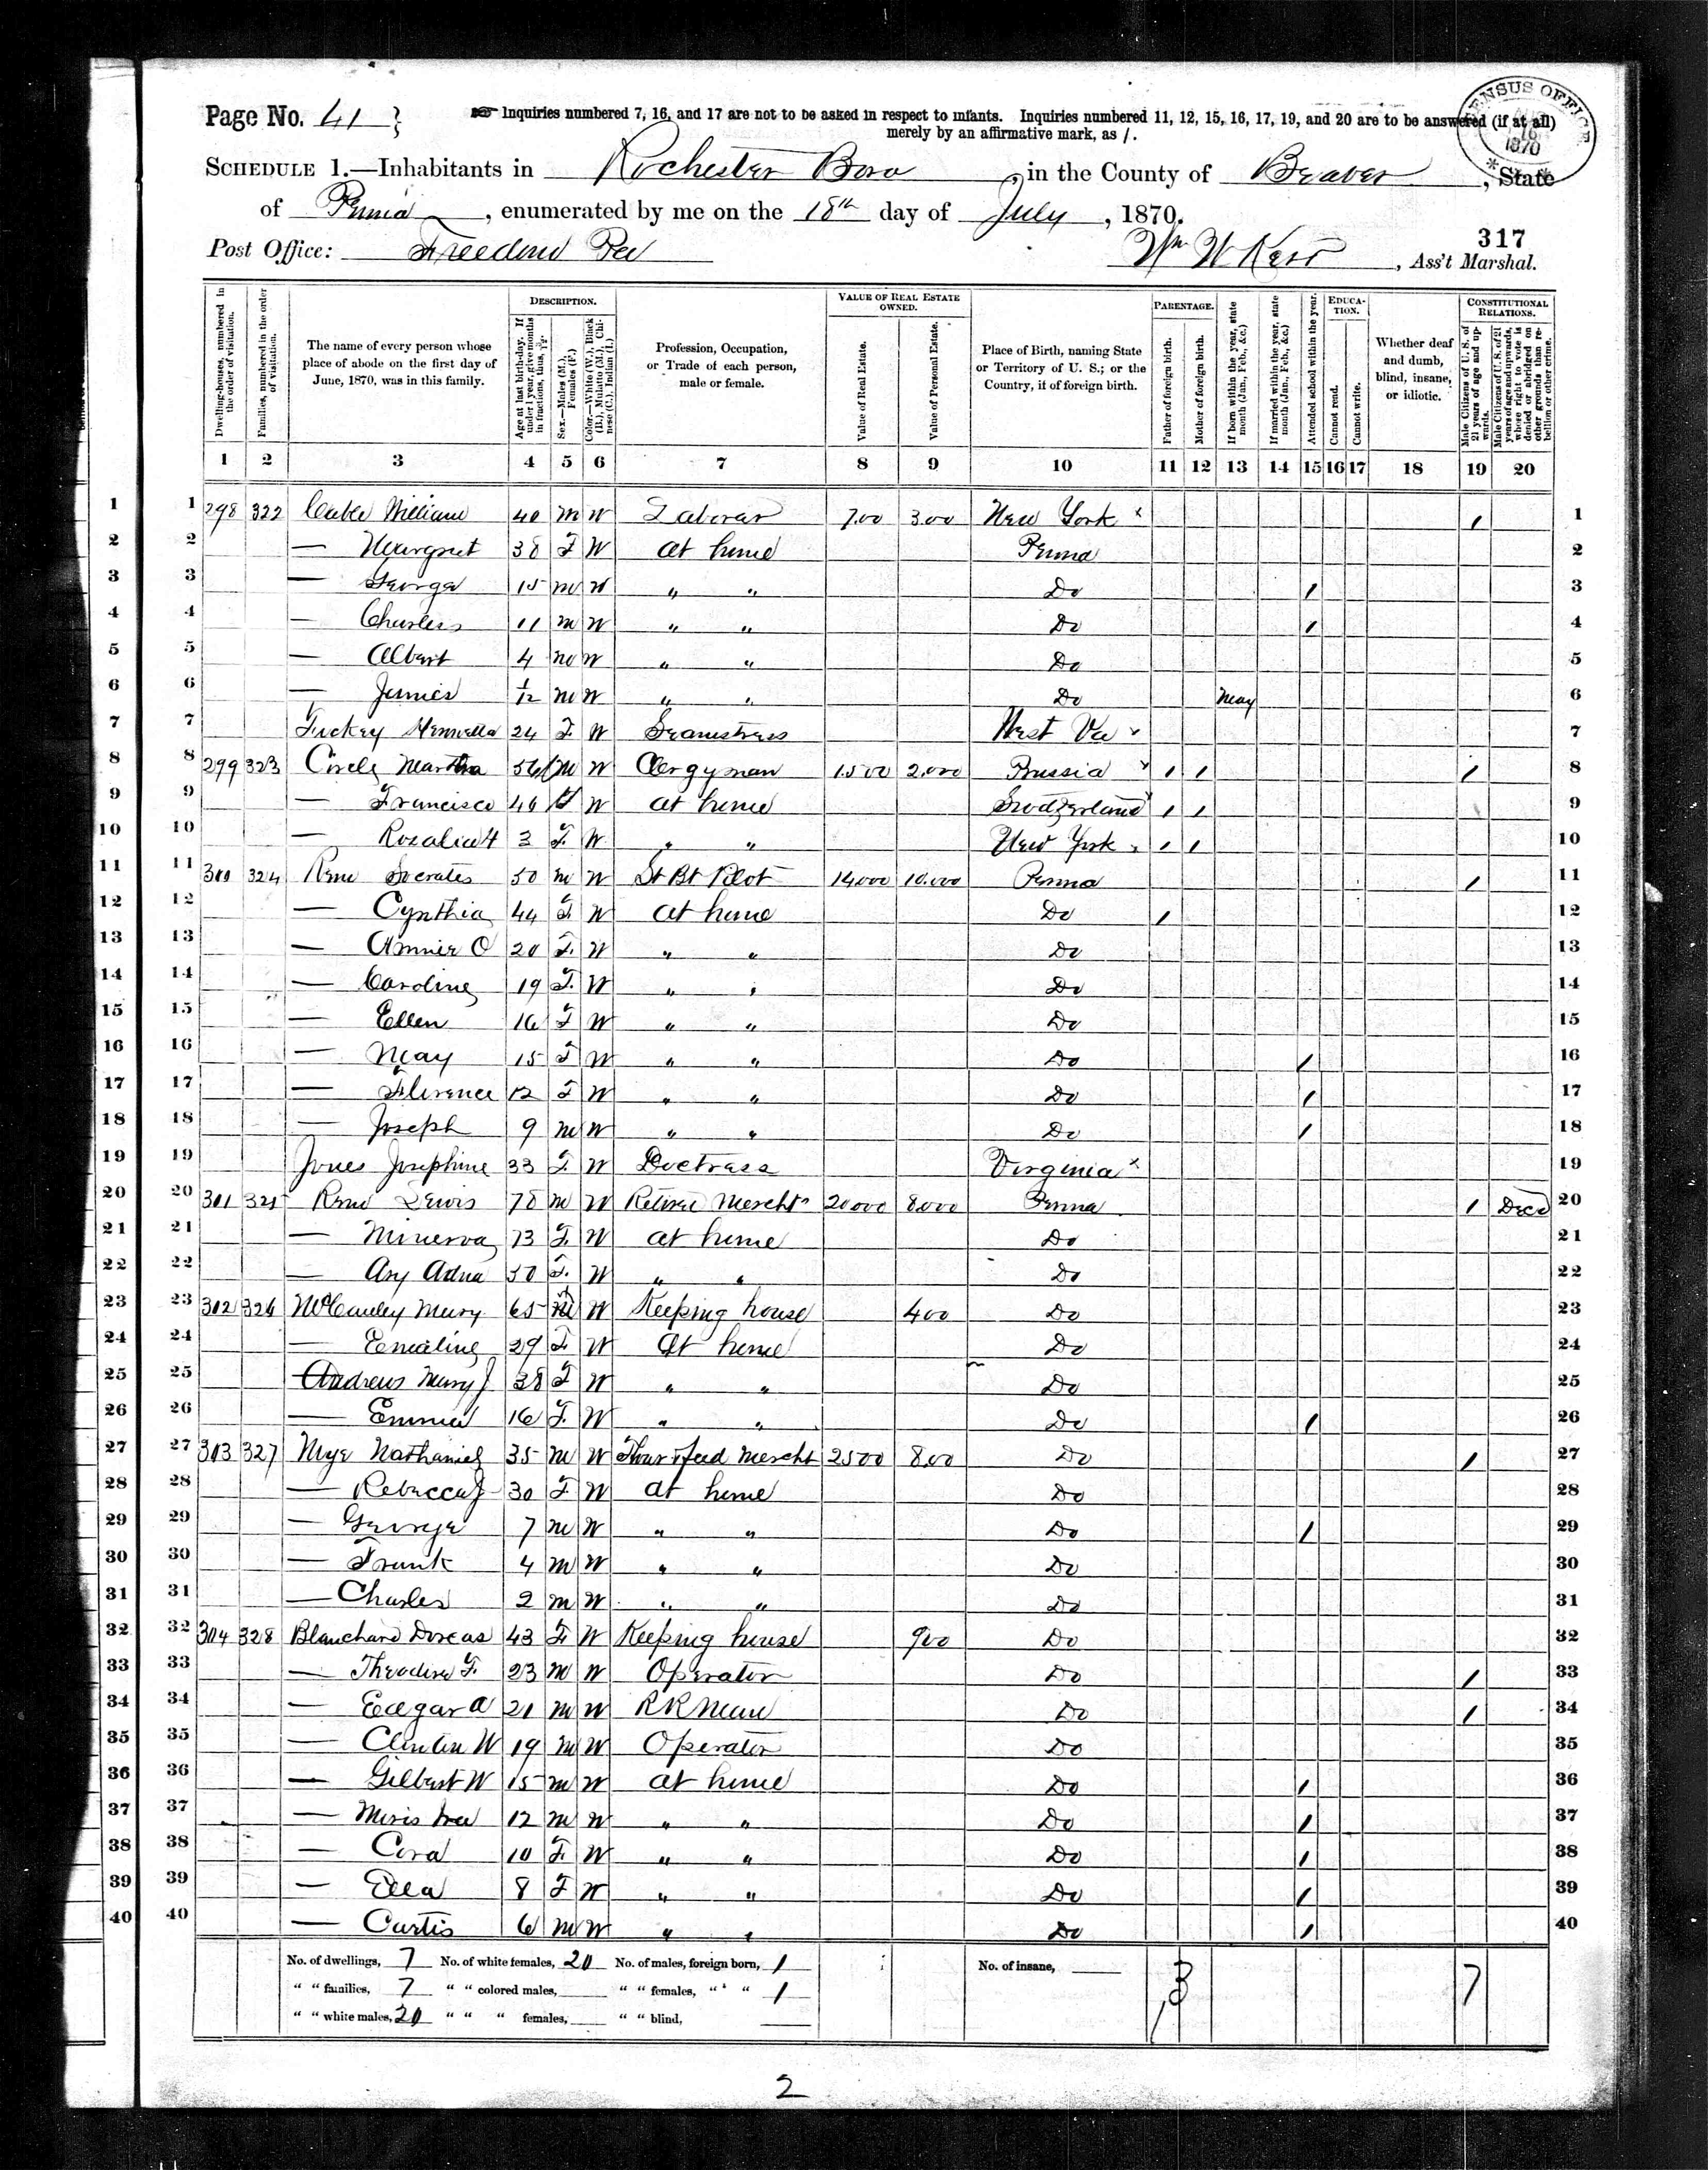 Page No. 41
Inquiries numbered 7, 16, and 17 are not to be asked in respect to infants. Inquiries numbered 11, 12, 15, 16, 17, 19, and 20 are to be answered (if at all)
merely by an affirmative mark, as /.
CENSUS OFFICE 1870
SCHEDULE 1.—Inhabitants in Rochester Boro, in the County of Beaver, State
of Penna, enumerated by me on the 18th day of July, 1870.
317
Post Office: Freedom Pa Wm W Kerr, Ass't Marshal.
Dwelling-houses, numbered in the order of visitation.
Families, numbered in the order of visitation.
The name of every person whose place of abode on the first day of June, 1870, was in this family.
DESCRIPTION.
Age at last birth-day. If under 1 year, give months in fractions, thus,
Sex.—Males (M.), Females (F.)
Color.—White (W.), Black (B.), Mulatto (M.), Chinese (C.), Indian (I.)
Profession, Occupation, or Trade of each person, male or female.
VALUE OF REAL ESTATE OWNED.
Value of Real Estate.
Value of Personal Estate.
Place of Birth, naming State or Territory of U. S.; or the Country, if of foreign birth.
PARENTAGE.
Father of foreign birth.
Mother of foreign birth.
If born within the year, state month (Jan., Feb., &c.)
If married within the year, state month (Jan., Feb., &c.)
Attended school within the year.
EDUCATION.
Cannot read.
Cannot write.
Whether deaf and dumb, blind, insane, or idiotic.
CONSTITUTIONAL RELATIONS.
Male Citizens of U. S. of 21 years of age and upwards.
Male Citizens of U. S. of 21 years of age and upwards, where right to vote is denied or abridged on other grounds than rebellion or other crime.
1 2 3 4 5 6 7 8 9 10 11 12 13 14 15 16 17 18 19 20
1 1 298 322 William 40 M W Laborer 700 300 New York / 1
2 2 — Margret 38 F W at home Penna 2
3 3 — George 15 M W " " Do / 3
4 4 — Charles 11 M W " " Do / 4
5 5 — Albert 4 M W " " Do 5
6 6 — James 1/12 M W " " Do May 6
7 7 24 F W Seamstress West Va 7
8 8 299 323 56 M W Clergyman 1500 2000 Prussia / / / 8
9 9 — Francisca 46 F W at home Switzerland / / 9
10 10 — 3 F W " " New York / / 10
11 11 300 324 Reno Socrates 50 M W St Bt Pilot 14000 10.000 Penna / 11
12 12 — Cynthia 44 F W at home Do / 12
13 13 — Annie O 20 F W " " Do 13
14 14 — Caroline 19 F W " " Do 14
15 15 — Ellen 16 F W " " Do 15
16 16 — May 15 F W " " Do / 16
17 17 — Florence 12 F W " " Do / 17
18 18 — Joseph 9 M W " " Do / 18
19 19 Jones Josephine 33 F W Doctress Virginia 19
20 20 301 325 Reno Lewis 78 M W Retired Mercht 20000 8000 Penna / 20
21 21 — Minerva 73 F W at home Do 21
22 22 — 50 F W " " Do 22
23 23 302 326 McCauley Mary 65 W Keeping house 400 Do 23
24 24 — Emaline 29 F W At home Do 24
25 25 Andrews Mary J 38 F W " " Do 25
26 26 — Emma 16 F W " " Do / 26
27 27 303 327 Nye Nathaniel 35 M W Flour & feed Mercht 2500 800 Do / 27
28 28 — Rebecca J 30 F W at home Do 28
29 29 — George 7 M W " " Do / 29
30 30 — Frank 4 M W " " Do 30
31 31 — Charles 2 M W " " Do 31
32 32 304 328 Blanchard Dorcas 43 F W Keeping house 900 Do 32
33 33 — Theodore F. 23 M W Operator Do / 33
34 34 — Edgar A 21 M W R R Man Do / 34
35 35 — Clinton W 19 M W Operator Do 35
36 36 — Gilbert W 15 M W at home Do / 36
37 37 — 12 M W " " Do / 37
38 38 — Cora 10 F W " " Do / 38
39 39 — Ella 8 F W " " Do / 39
40 40 — Curtis 6 M W " " Do / 40
No. of dwellings, 7 No. of white females, 20 No. of males, foreign born, 1 No. of insane,
" " families, 7 " " colored males, " " females, " " 1 3 7
" " white males, 20 " " " females, " " blind,
2